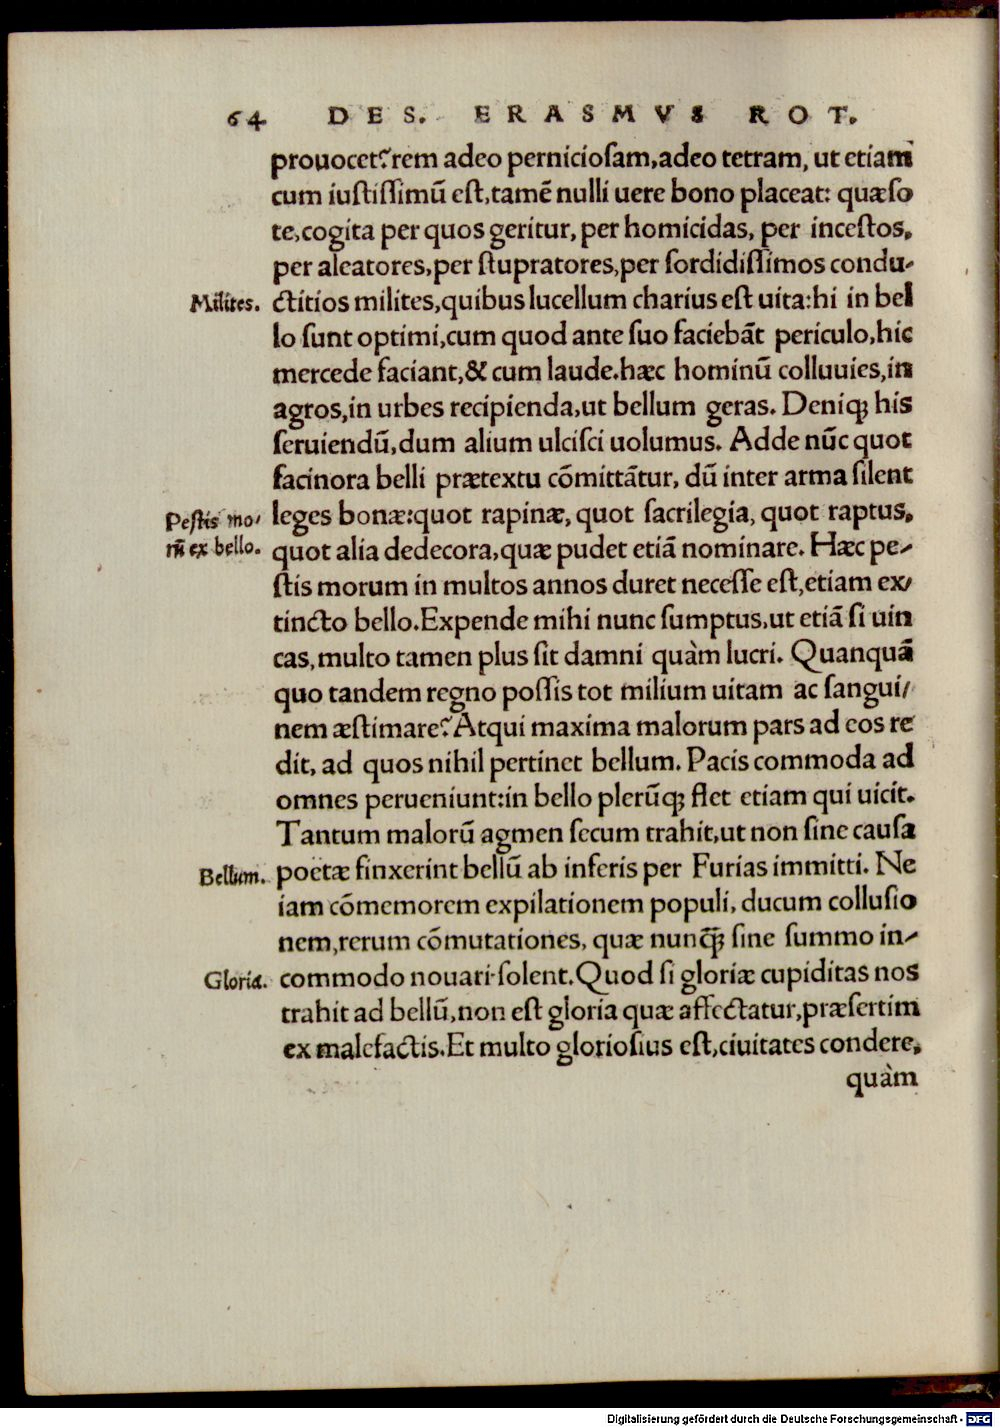 64 DES. ERASMVS ROT.
prouocet? rem adeo perniciosam, adeo tetram, ut etiam
cum iustissimū est, tamē nulli uere bono placeat: quæso
te, cogita per quos geritur, per homicidas, per incestos,
per aleatores, per stupratores, per sordidissimos condu-
Milites. ctitios milites, quibus lucellum charius est uita: hi in bel
lo sunt optimi, cum quod ante suo faciebāt periculo, hic
mercede faciant, & cum laude. hæc hominū colluuies, in
agros, in urbes recipienda, ut bellum geras. Deniqꝫ his
seruiendū, dum alium ulcisci uolumus. Adde nūc quot
facinora belli prætextu cōmittātur, dū inter arma silent
Pestis mo/ leges bonæ: quot rapinæ, quot sacrilegia, quot raptus,
rū ex bello. quot alia dedecora, quæ pudet etiā nominare. Hæc pe-
stis morum in multos annos duret necesse est, etiam ex/
tincto bello. Expende mihi nunc sumptus, ut etiā si uin
cas, multo tamen plus sit damni quàm lucri. Quanquā
quo tandem regno possis tot milium uitam ac sangui/
nem æstimare? Atqui maxima malorum pars ad eos re
dit, ad quos nihil pertinet bellum. Pacis commoda ad
omnes perueniunt: in bello plerūqꝫ flet etiam qui uicit.
Tantum malorū agmen secum trahit, ut non sine causa
Bellum. poetæ finxerint bellū ab inferis per Furias immitti. Ne
iam cōmemorem expilationem populi, ducum collusio
nem, rerum cōmutationes, quæ nunq̄ꝫ sine summo in-
Gloria. commodo nouari solent. Quod si gloriæ cupiditas nos
trahit ad bellū, non est gloria quæ affectatur, præsertim
ex malefactis. Et multo gloriosius est, ciuitates condere,
quàm
Digitalisierung gefördert durch die Deutsche Forschungsgemeinschaft - DFG